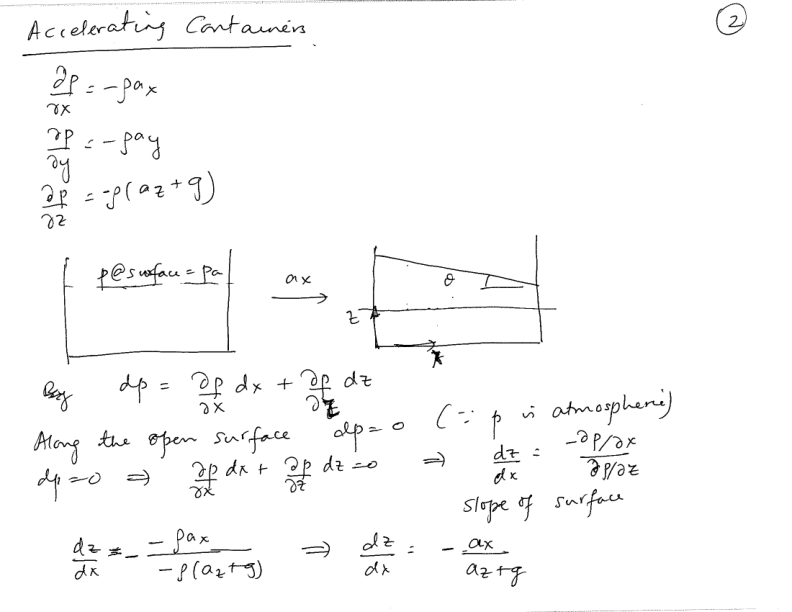 Accelerating Containers
2
∂p/∂x = -ρax
∂p/∂y = -ρay
∂p/∂z = -ρ(az+g)
p@surface = pa
ax
θ
z
x
dp = ∂p/∂x dx + ∂p/∂z dz
Along the open surface dp=0 (∵ p is atmospheric)
dp=0 ⇒ ∂p/∂x dx + ∂p/∂z dz=0 ⇒ dz/dx = -∂p/∂x / ∂p/∂z
slope of surface
dz/dx = - -ρax / -ρ(az+g) ⇒ dz/dx = - ax / az+g